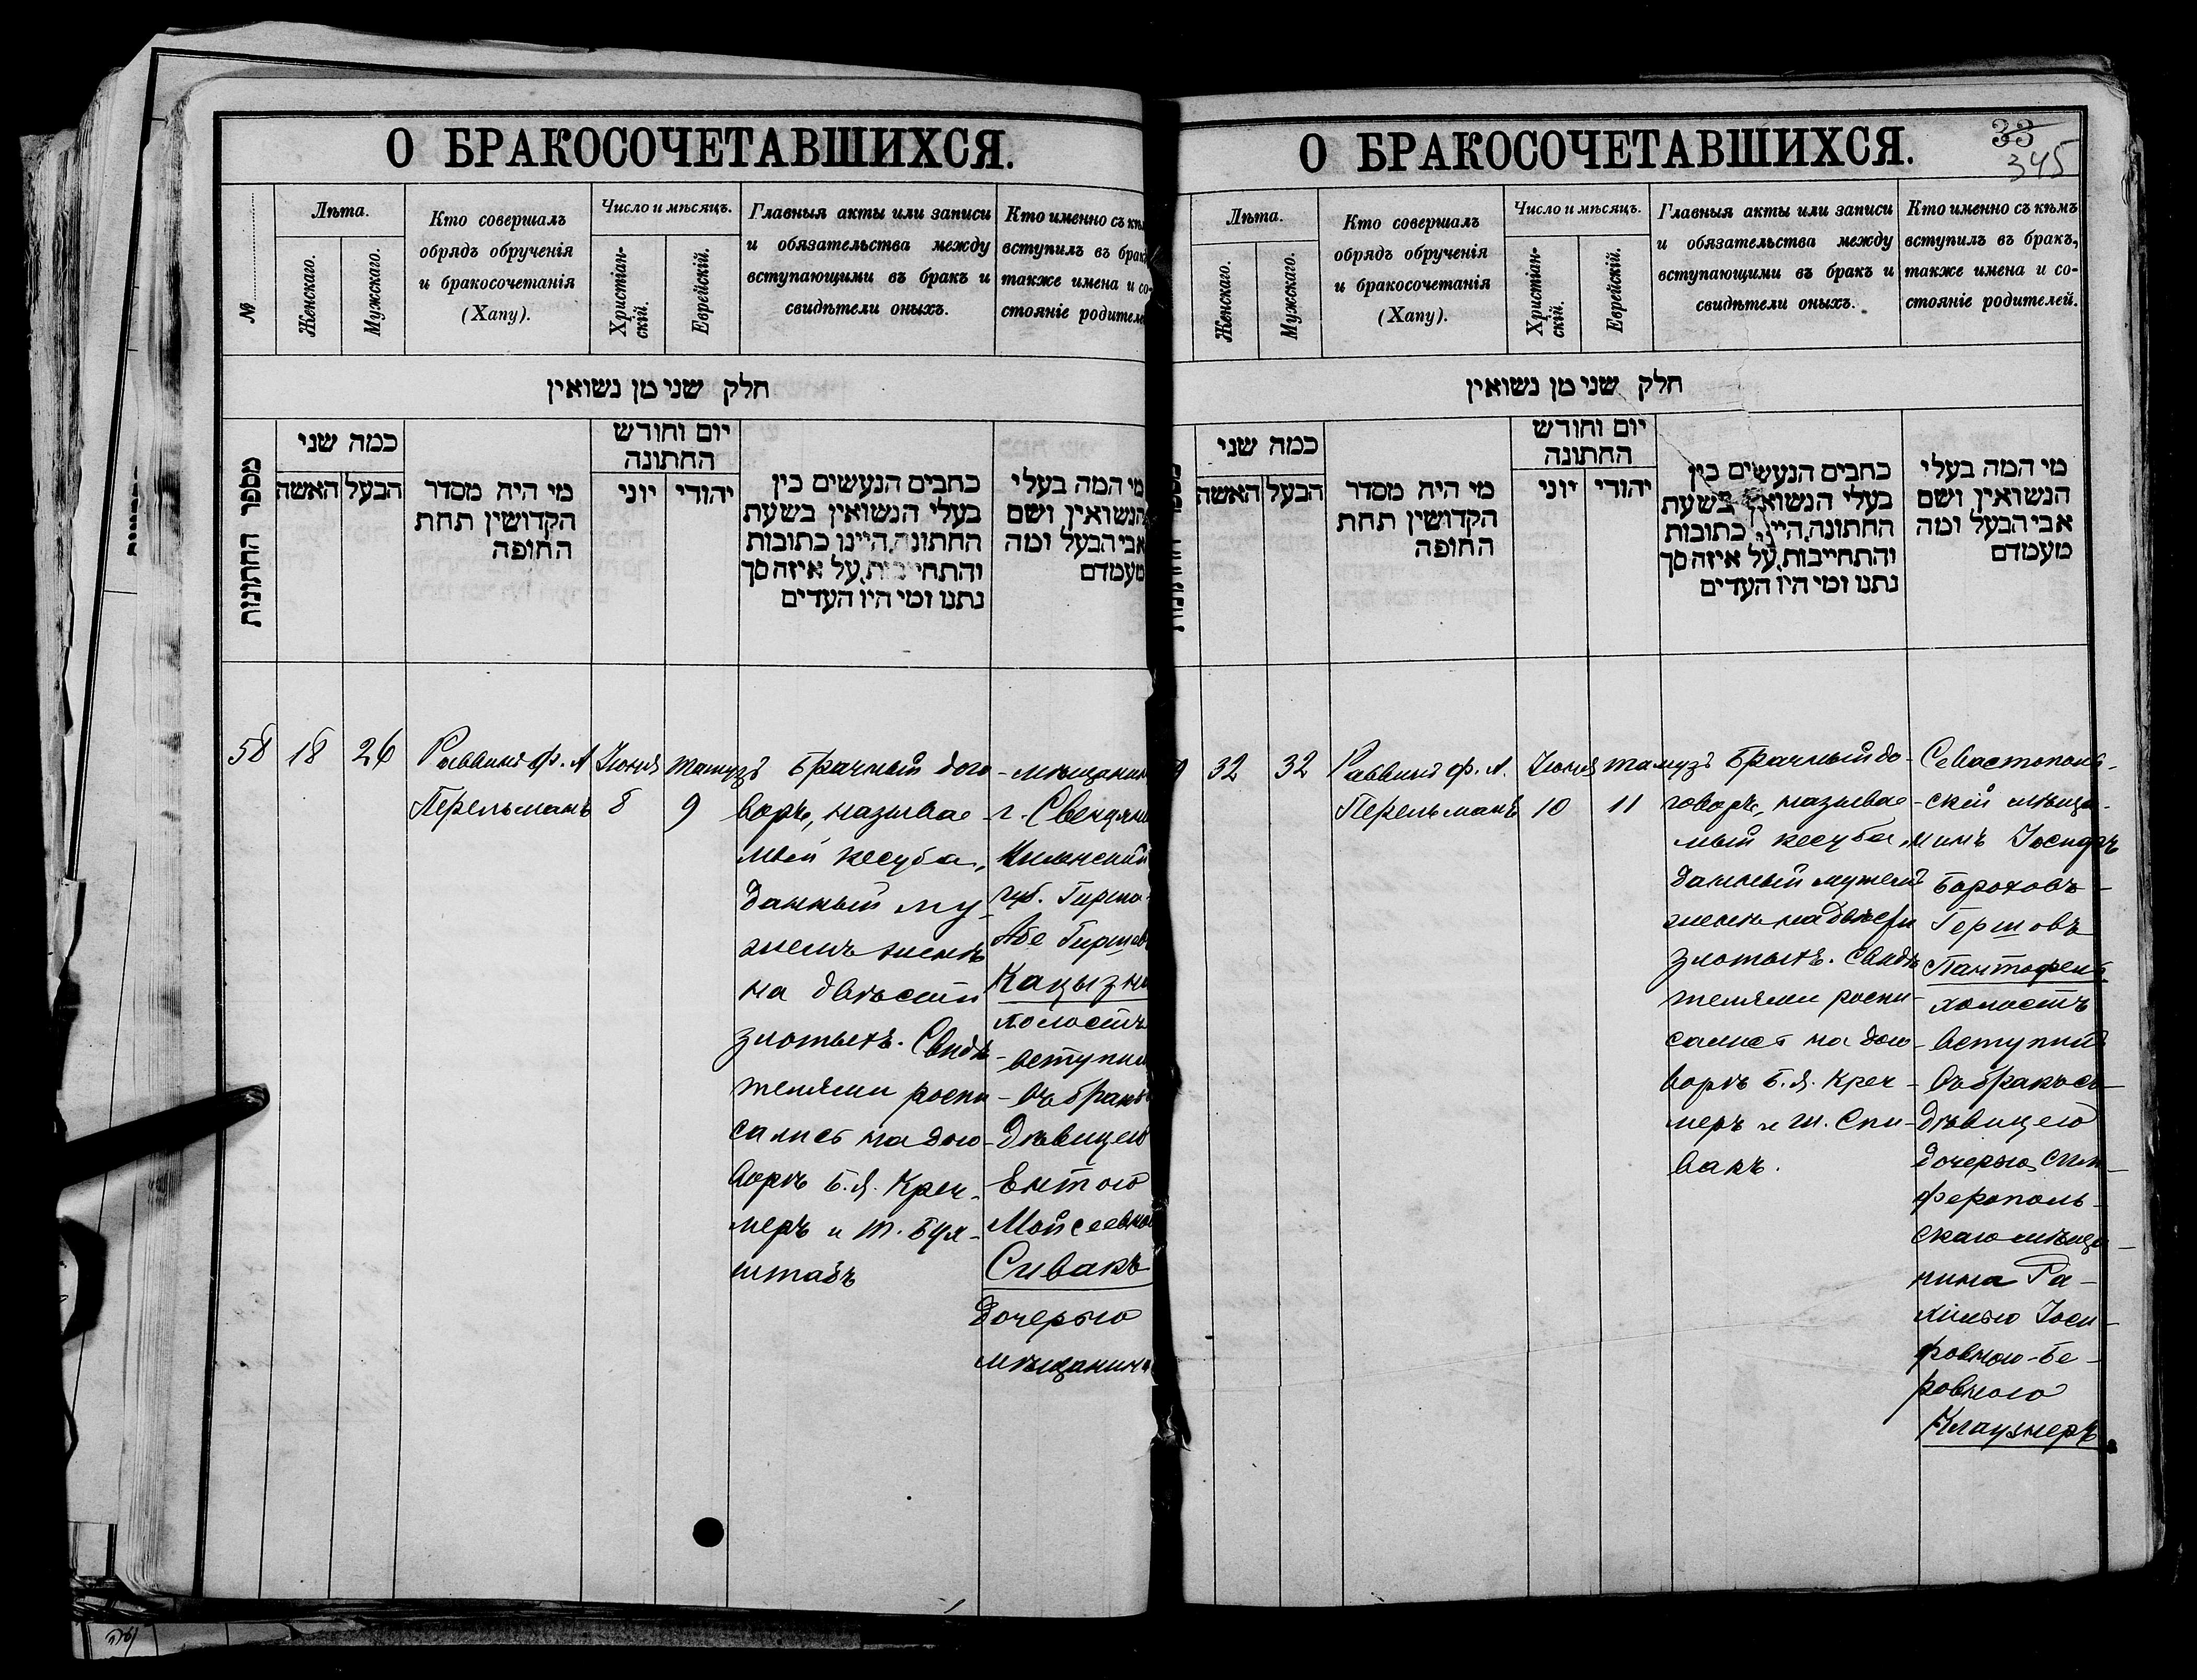 О БРАКОСОЧЕТАВШИХСЯ.
№
Лѣта.
Женскаго.
Мужскаго.
Кто совершалъ
обрядъ обрученія
и бракосочетанія
(Хапу).
Число и мѣсяцъ.
Христіан-
скій.
Еврейскій.
Главныя акты или записи
и обязательства между
вступающими въ бракъ и
свидѣтели оныхъ.
Кто именно съ
вступилъ въ
также имена и со-
стояніе
חלק שני מן נשואין
מספר החתונות
כמה שני
האשה
הבעל
מי היה מסדר
הקדושין תחת
החופה
יום וחודש
החתונה
יוני
יהודי
כתבים הנעשים בין
בעלי הנשואין בשעת
החתונה, היינו כתובות
והתחייבות, על איזה סך
נתנו ומי היו העדים
מי המה בעלי
הנשואין ושם
אבי הבעל ומה
מעמדם
58
18
26
Раввинъ Ф. А
Перельманъ
Іюня
8
тамузъ
9
брачный дого-
воръ, называе-
мый кесуба,
данный му-
жемъ женѣ
на двѣсти
злотыхъ. Свидѣ-
телями роспи-
сались на дого-
ворѣ Б. Я. Креч-
меръ и
штабъ
г.
губ.
Абе
холостъ
дѣвицею
Сивакъ
дочерью
О БРАКОСОЧЕТАВШИХСЯ.
33
345
Лѣта.
Женскаго.
Мужскаго.
Кто совершалъ
обрядъ обрученія
и бракосочетанія
(Хапу).
Число и мѣсяцъ.
Христіан-
скій.
Еврейскій.
Главныя акты или записи
и обязательства между
вступающими въ бракъ и
свидѣтели оныхъ.
Кто именно съ кѣмъ
вступилъ въ бракъ,
также имена и со-
стояніе родителей.
חלק שני מן נשואין
כמה שני
האשה
הבעל
מי היה מסדר
הקדושין תחת
החופה
יום וחודש
החתונה
יוני
יהודי
כתבים הנעשים בין
בעלי בשעת
החתונה, כתובות
והתחייבות, על איזה סך
נתנו ומי היו העדים
מי המה בעלי
הנשואין ושם
אבי הבעל ומה
מעמדם
32
32
Раввинъ Ф. А.
Перельманъ
Іюня
10
тамузъ
11
брачный до-
говоръ, называе-
мый кесуба,
данный мужемъ
женѣ на двѣсти
злотыхъ. Свидѣ-
телями роспи-
сались на дого-
ворѣ Б. Я. Креч-
меръ и Ш. Спи-
вакъ.
Севастополь-
скій мѣща-
нинъ Іосифъ
Гершовъ
холостъ
вступилъ
въ бракъ съ
дѣвицею
дочерью Сим-
ферополь-
скаго мѣща-
нина Ра-
хилью Іоси-
фовною-Бе-
ровною
Клаузнеръ